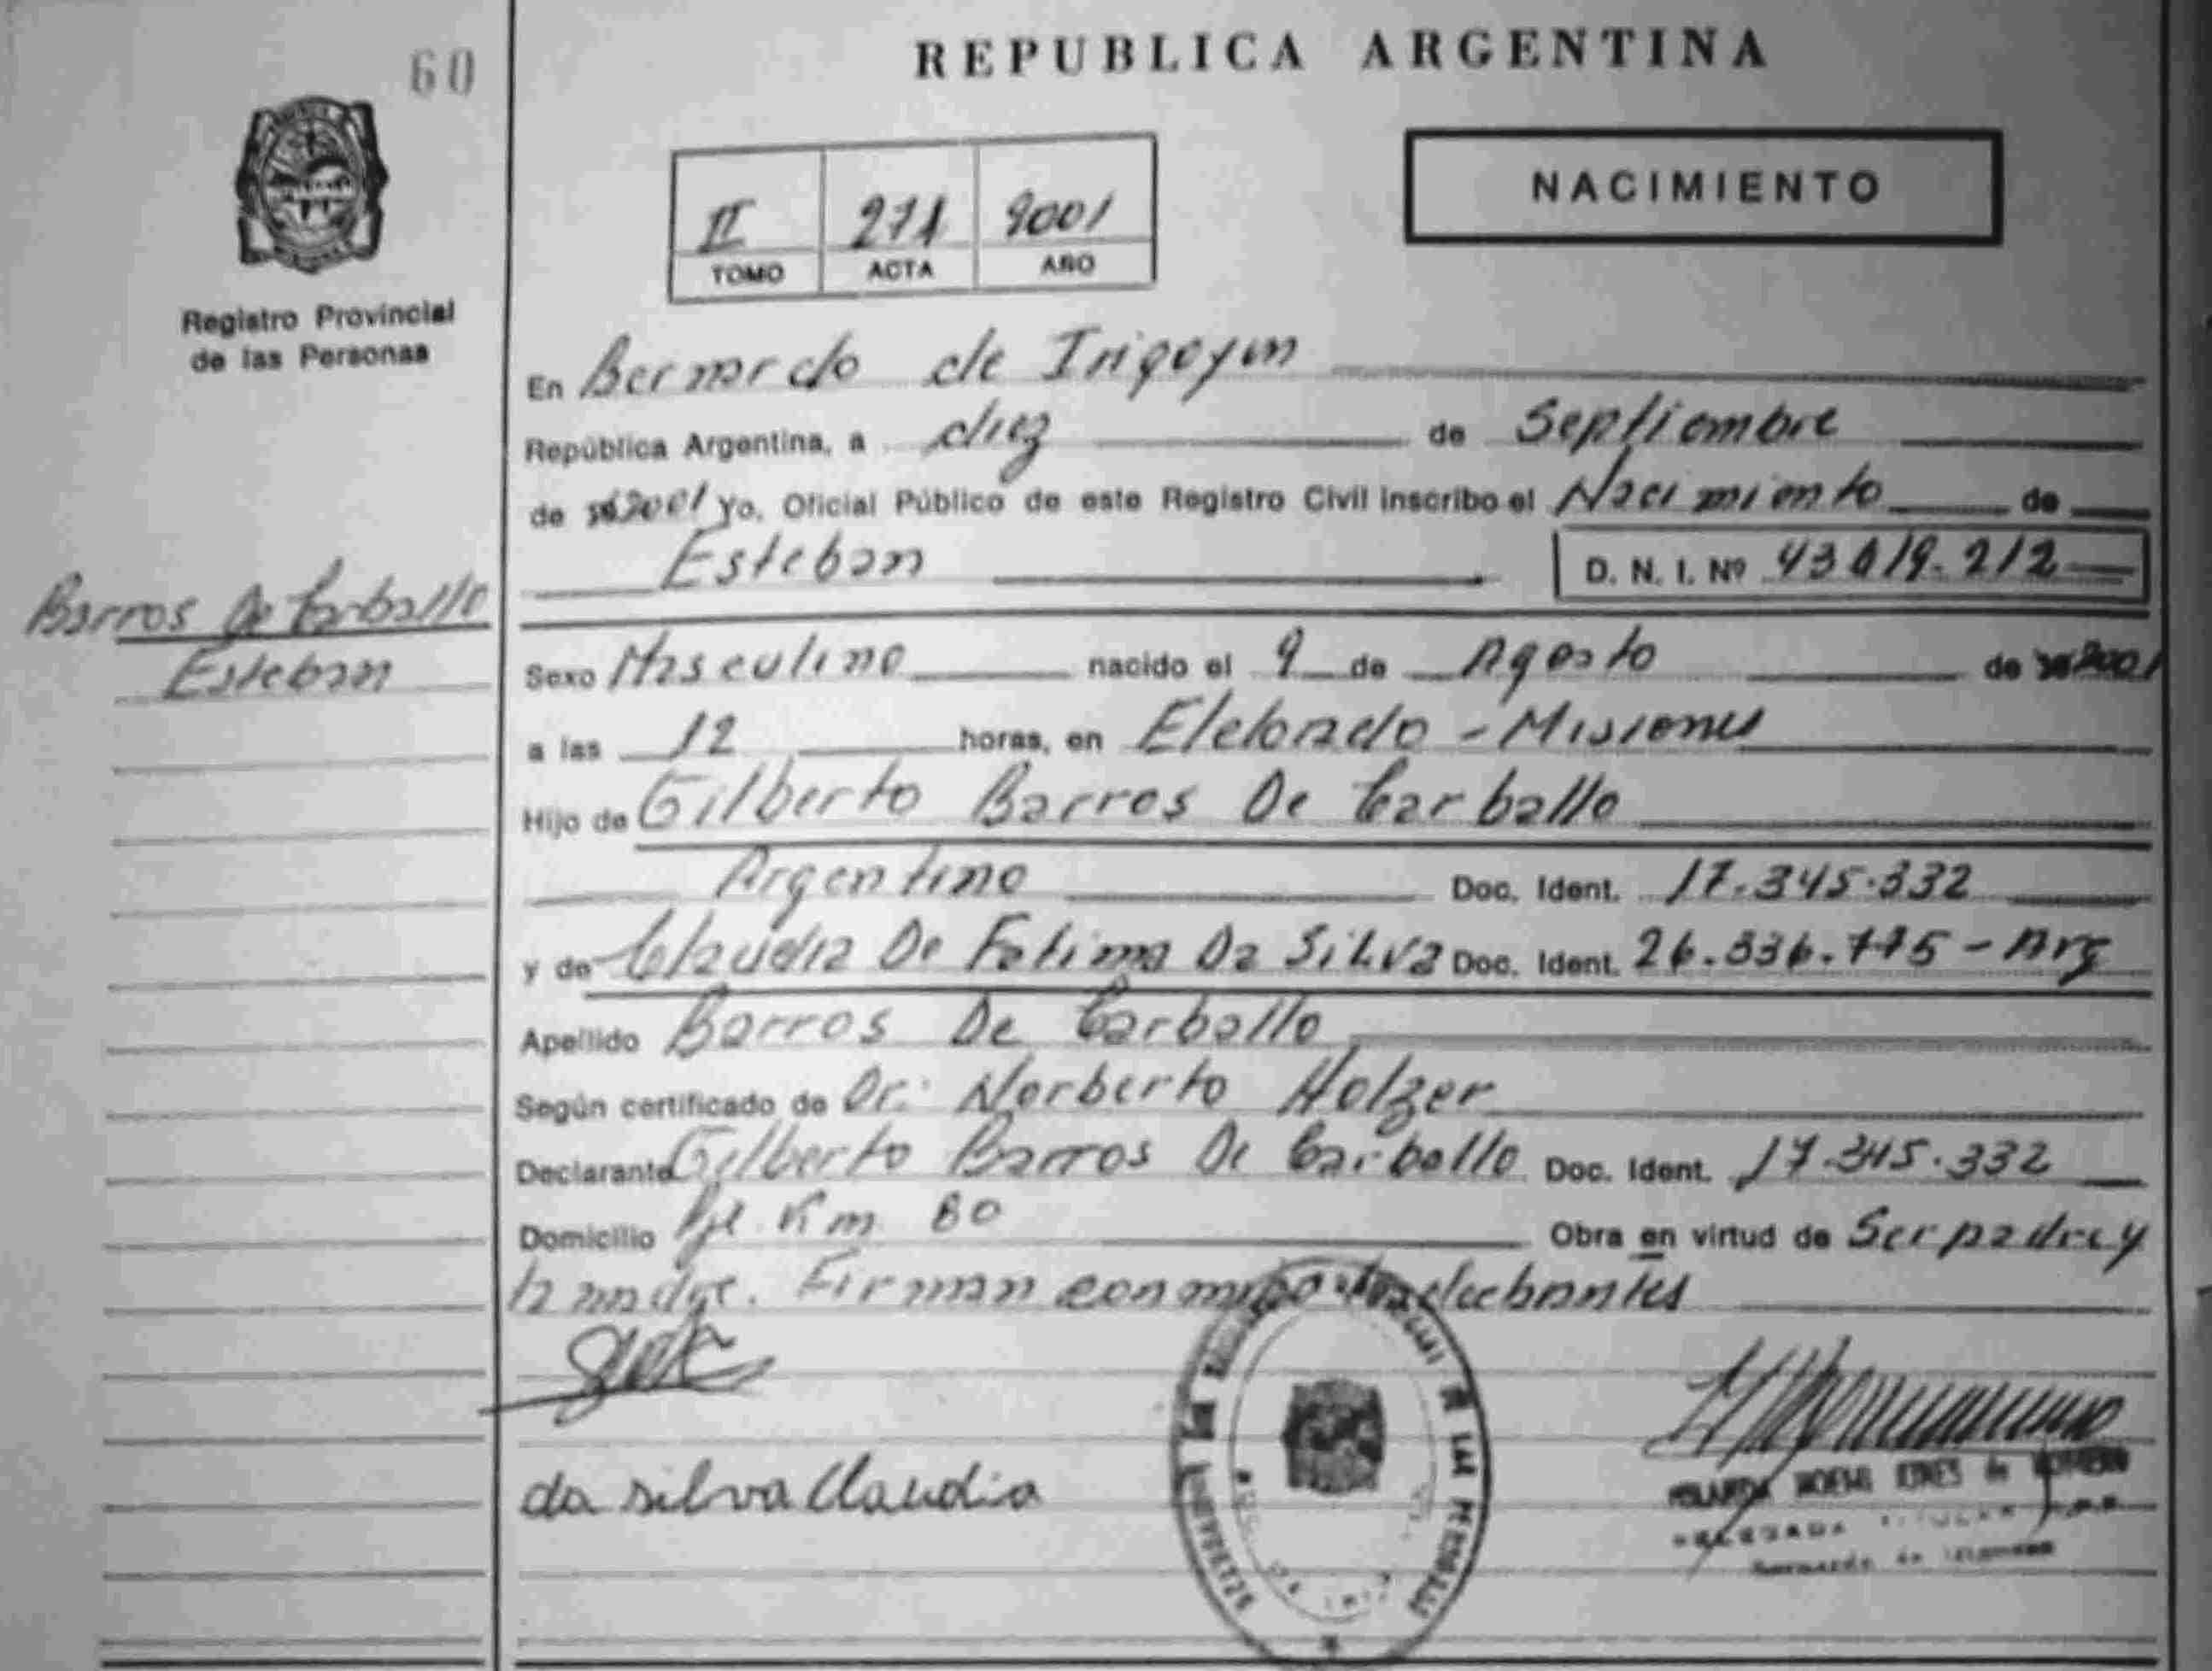 60
REPUBLICA ARGENTINA
NACIMIENTO
II 271 2001
TOMO ACTA AÑO
Registro Provincial
de las Personas
En Bernardo de Irigoyen
República Argentina, a diez de Septiembre
de 2001 Yo, Oficial Público de este Registro Civil inscribo el Nacimiento de
Esteban D. N. I. Nº 43.419.212
Barros De Carballo
Esteban
Sexo Masculino nacido el 9 de Agosto de 2001
a las 12 horas, en Eldorado - Misiones
Hijo de Gilberto Barros De Carballo
Argentino Doc. Ident. 17.345.332
y de Claudia De Fatima Da Silva Doc. Ident. 26.336.775 - Arg
Apellido Barros De Carballo
Según certificado de Dr. Norberto Holzer
Declarante Gilberto Barros De Carballo Doc. Ident. 17.345.332
Domicilio Pje Km 80 Obra en virtud de Ser padre y
la madre. Firman conmigo los declarantes
da silva Claudia
NOEMI
DE LAS PERSONAS